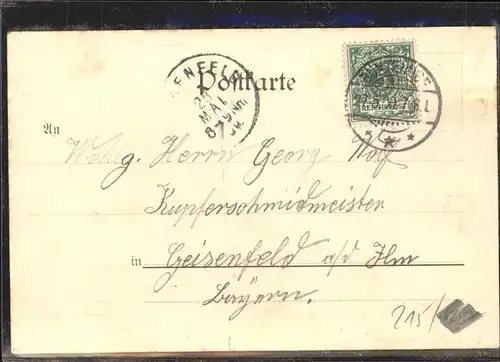 Postkarte
REICHSPOST
An
Wohlg. Herrn Georg
Kupferschmidmeister
in Geisenfeld a/d Ilm
Bayern.
215/